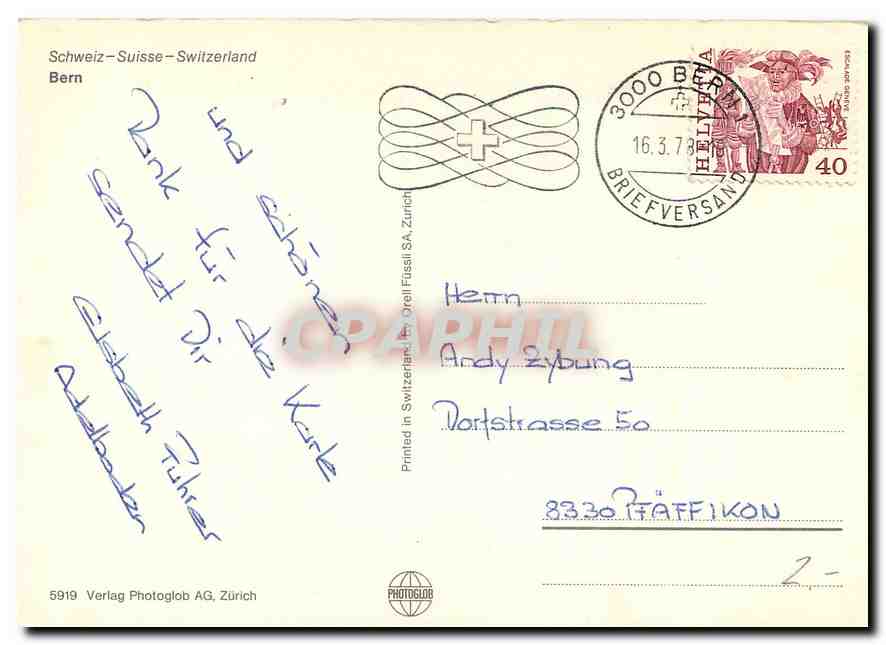 Schweiz–Suisse–Switzerland
Bern
und schönen
Dank für die Karte
sendet Dir
Elsbeth Fuhrer
Adelboden
5919 Verlag Photoglob AG, Zürich
Printed in Switzerland by Orell Füssli SA, Zürich
PHOTOGLOB
3000 BERN 1
16.3.78
BRIEFVERSAND
HELVETIA
ESCALADE GENÈVE
40
CPAPHIL
Herrn
Andy Zybung
Dorfstrasse 50
8330 PFÄFFIKON
2.-